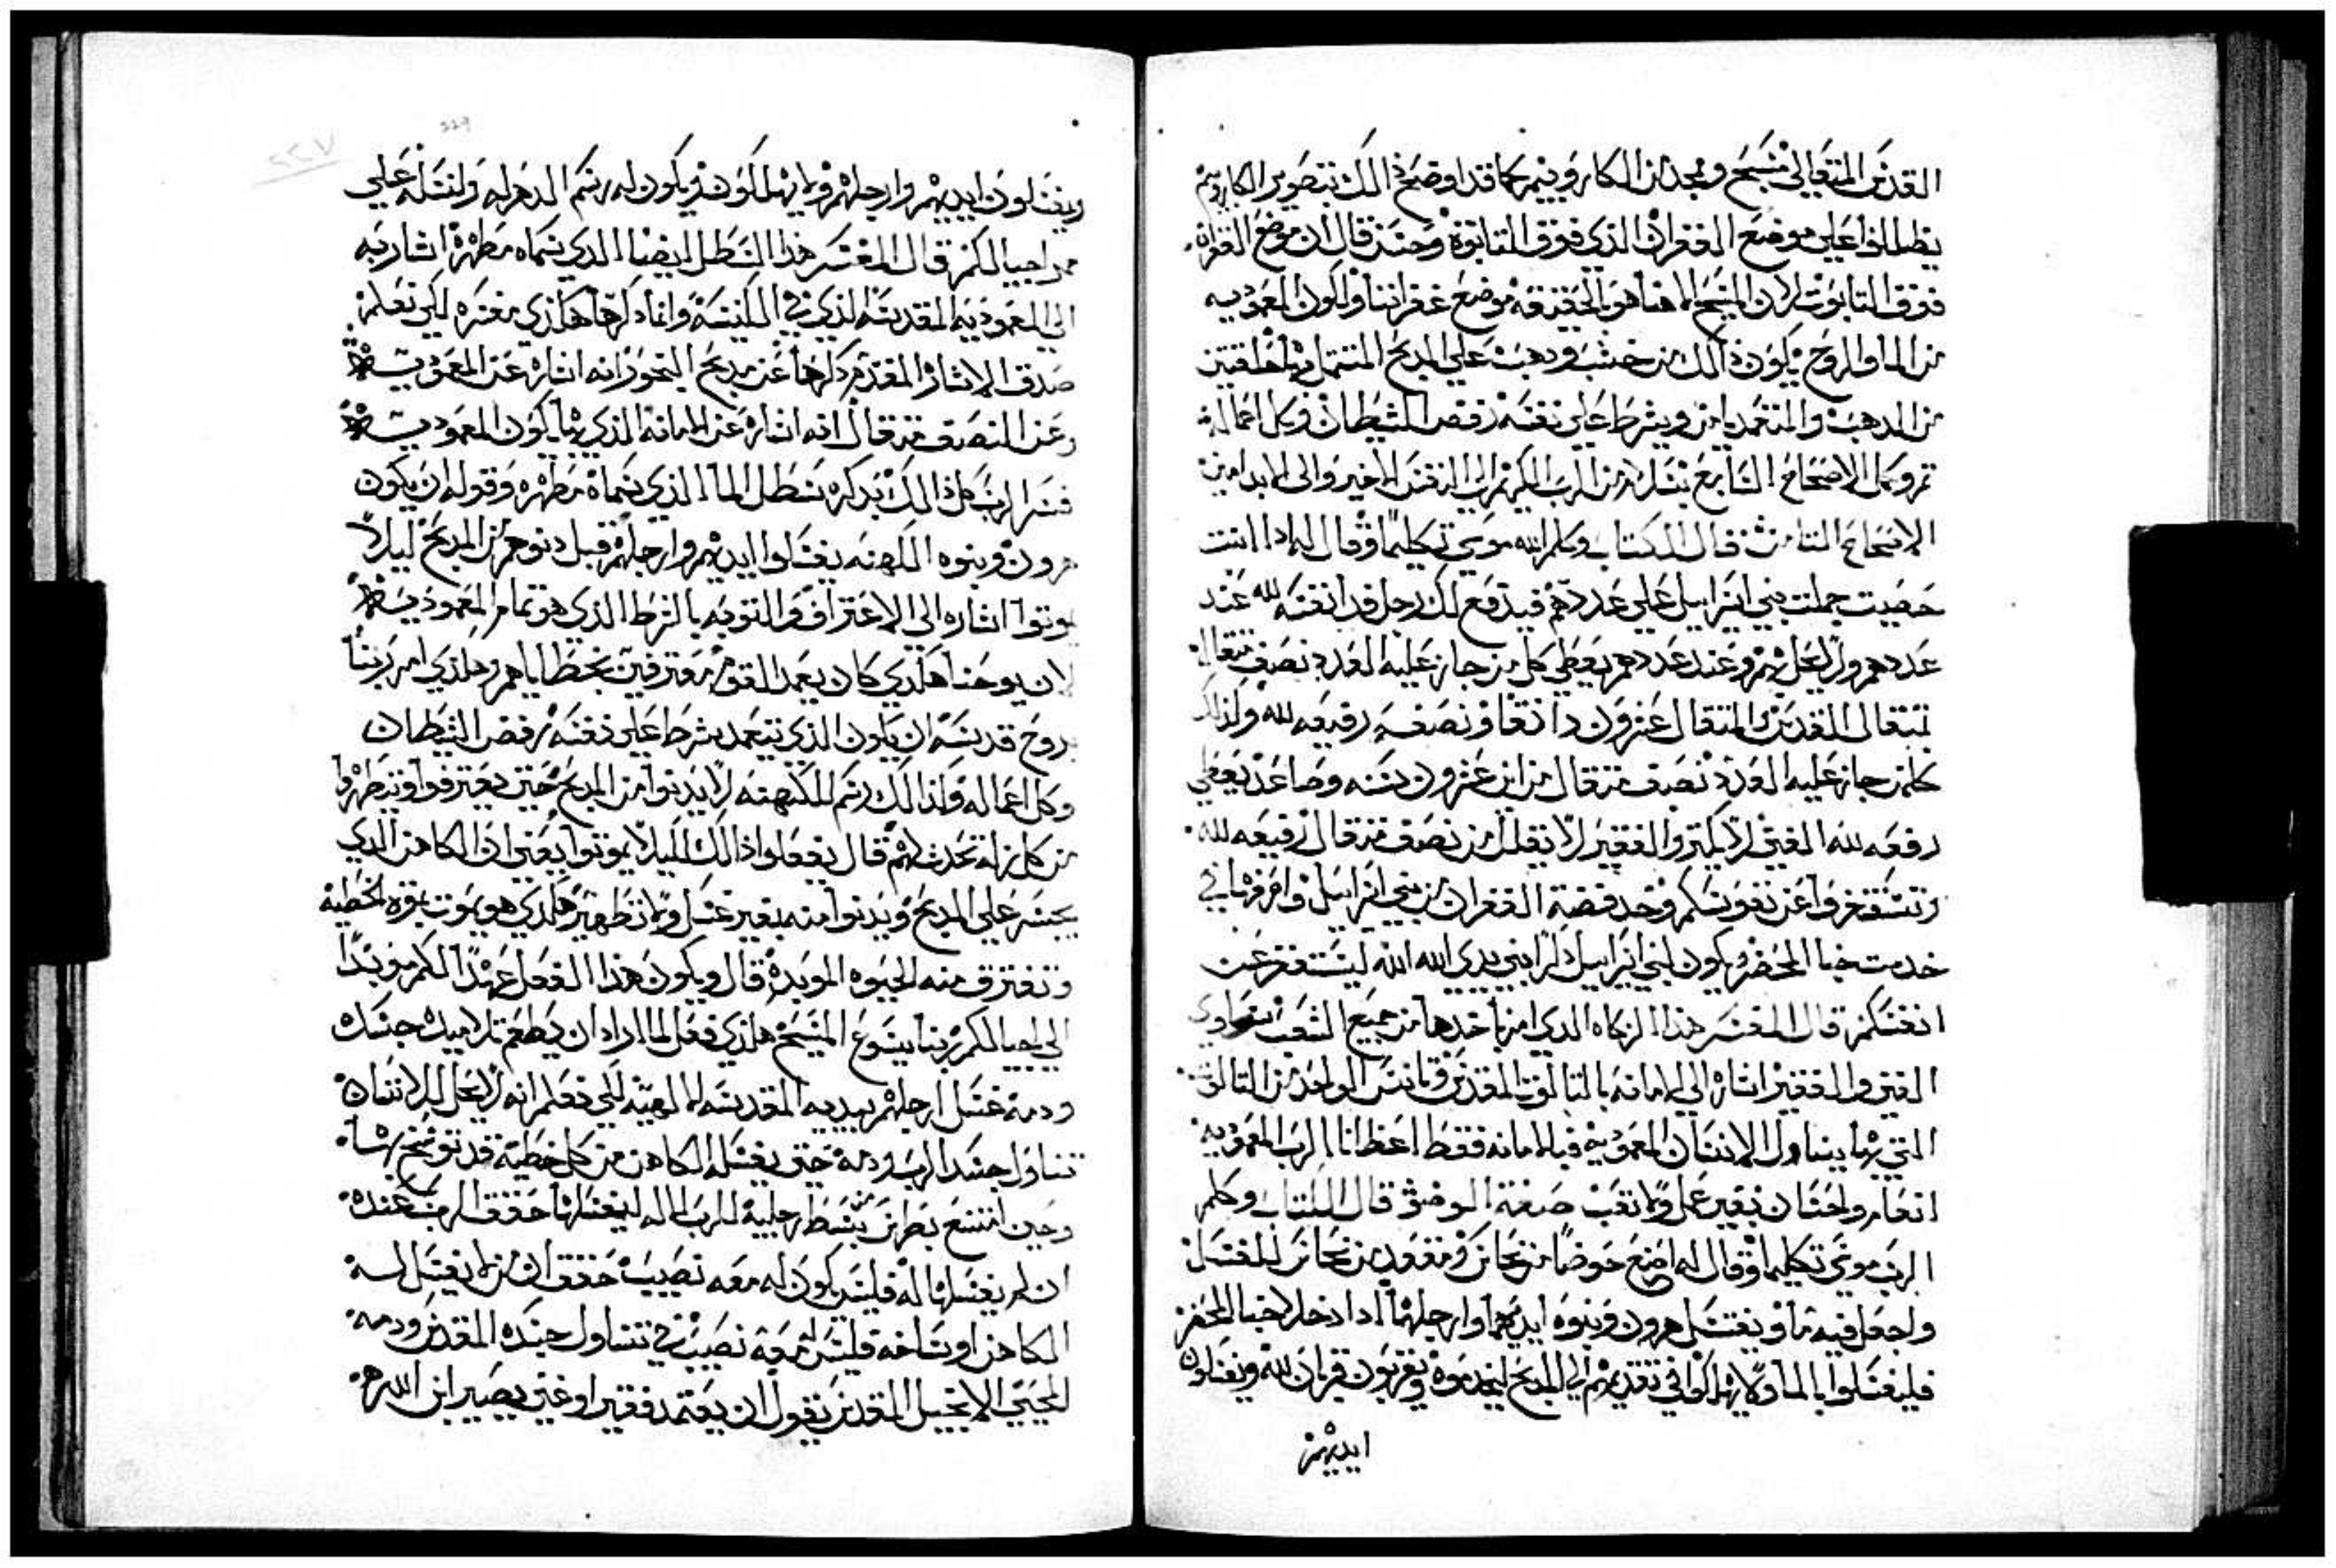 القدس المتعالي مسبح وممجد من الكاروبيم كما قد اوضح ذالك بتصوير الكاروبيم
يظللوا علي موضع الغفران الذي فوق التابوة وحسن قال ان موضع الغفران
فوق التابوت لان المسيح الاهنا هو بالحقيقه موضع غفراننا ولكون المعموديه
من الما والروح يكون ذالك من خشب ودهب علي المدبح المشتمل بها
من الدهب والمتعمد يامن ويشرط علي نفسه رفض الشيطان وكل اعماله
تم وكمل الاصحاح السابع بسلام من الرب امين
الاصحاح الثامن قال الكتاب وكلم الله موسي تكليمًا وقال له ادا انت
حصيت جملت بني اسراييل علي عددهم فيدفع لك رجل فدا نفسه لله عند
عددهم ولا يحل بهم وعند عددهم يعطي كل من جاز عليه العدد نصف مثقال
بمثقال القدس المثقال عشرون دانقا ونصفه رفيعه لله ولذلك
كلمن جاز عليه العدد نصف مثقال من ابن عشرون سنه وصاعد يعطي
رفعه لله الغني لا يكتر والفقير لا يقلل من نصف مثقال رفيعه لله
وتستغفروا عن نفوسكم وخد فضة الغفران من بني اسراييل واصرفها في
خدمت خبا المحضر ويكون لبني اسراييل ذكرا بين يدي الله ليستغفر عن
انفسكم قال المفسر هذا الزكاه الدي امر باخدها من جميع الشعب بتساوي
الغني والفقير اشاره الي الامانه بالتالوت المقدس وبانس الواحد من التالوت
التي بها يتناول الانسان المعموديه فبالامانه فقط اعطانا الرب المعموديه
انعام واحسان بغير عمل ولا تعب صفة الوضو قال الكتاب وكلم
الرب موسي تكليما وقال له اصنع حوضًا من نحاس ومقعده من نحاس للغسل
واجعل فيه ما ويغتسل هرون وبنوه ايديهما وارجلهما ادا دخلا خبا المحضر
فليغسلوا بالما ولا يهلكوا في تقديمهم الي المدبح ليخدموه ويقربون قربان لله ويغسلون
ايديهم
ويغسلون ايديهم وارجلهم ولا يهلكون ويكون له رسم الدهر له ولنسله علي
ممر اجيالكم قال المفسر هذا السطل ايضا الدي سماه مطهرة اشار به
الي المعموديه المقدسه الذي في الكنيسة وانما ذكرها هاكذي مفسره لكي نعلم
صدق الاشاره المقدم ذكرها عن مدبح البخور انه اشاره عن المعموديه
وعن النصف مثقال انه اشاره عن الامانه الذي بها يكون المعموديه
فسر الرب كل ذالك بذكره سطل الما الذي سماه مطهره وقوله ان يكون
هرون وبنوه الكهنه يغسلوا ايديهم وارجلهم قبل دنوهم من المدبح ليلا
يموتوا اشاره الي الاعتراف والتوبه بالشرط الذي هو تمام المعموديه
لان يوحنا هاكدي كان يعمد القوم معترفين بخطاياهم وهاكذي امر ربنا
بروح قدسه ان يكون الذي يتعمد يشرط علي نفسه رفض الشيطان
وكل اعماله ولذالك رسم للكهنه لا يدنوا من المدبح حتي يعترفوا ويتطهروا
من كل زله تحدث لهم قال يفعلوا ذالك ليلا يموتوا يعني ان الكاهن الدي
يجسر علي المدبح ويدنوا منه بغير غسل ولا تطهير هاكدي هو يموت بموة الخطيه
وتفترق منه الحيوه الموبده قال ويكون هذا الفعل عهدًا لكم موبدًا
الي اجيالكم ربنا يسوع المسيح هاكذي فعل لما اراد ان يطعم تلاميده جسده
ودمه غسل ارجلهم بيديه المقدسه الالهيه لكي نعلم انه لا يحل للانسان
تناول جسد الرب ودمه حتي يغسله الكاهن من كل خطية قد توسخ بها
وحين امتنع بطرس ببسط رجليه للرب الاله ليغسلها حقق الرب عنده
ان لم يغسلها له فليس يكون له معه نصيب حقق ان من لا يغتسل له
الكاهن اوساخه فليس معه نصيب في تناول جسده المقدس ودمه
المحيي الانجيل المقدس يقول ان يعتمد فقير او غني يصير ابن الله